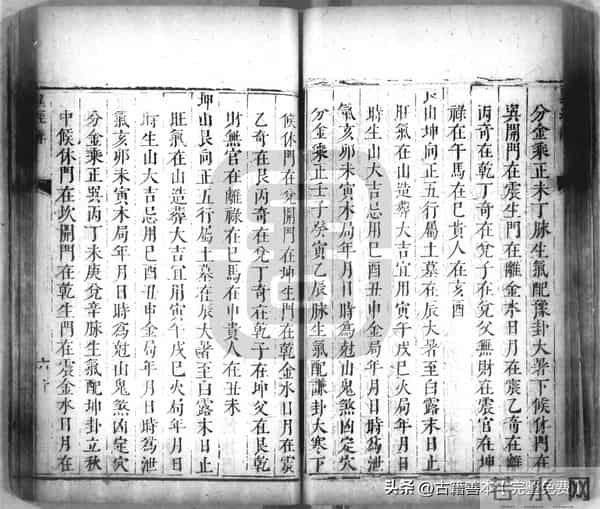 分金乘正未丁脉生氣配豫卦大暑下候休門在
巽開門在震生門在離金水日月在震乙奇在離
丙奇在乾丁奇在兌子在兌父無財在震官在坤
祿在午馬在巳貴人在亥酉
山坤向正五行屬土墓在辰大暑至白露末日止
旺氣在山造葬大吉宜用寅午戌巳火局年月日
時生山大吉忌用巳酉丑申金局年月日時為泄
氣亥卯未寅木局年月日時為尅山鬼煞凶定穴
分金乘正壬子癸寅乙辰脉生氣配謙卦大寒下
候休門在兌開門在坤生門在乾金水日月在震
乙奇在艮丙奇在兌丁奇在乾子在坤父在艮乾
財無官在離祿在巳馬在申貴人在丑未
坤山艮向正五行屬土墓在辰大暑至白露末日止
旺氣在山造葬大吉宜用寅午戌巳火局年月日
時生山大吉忌用巳酉丑申金局年月日時為泄
氣亥卯未寅木局年月日時為尅山鬼煞凶定穴
分金乘正巽丙丁未庚兌辛脉生氣配坤卦立秋
中候休門在坎開門在乾生門在震金水日月在
六
头条 @古籍善本